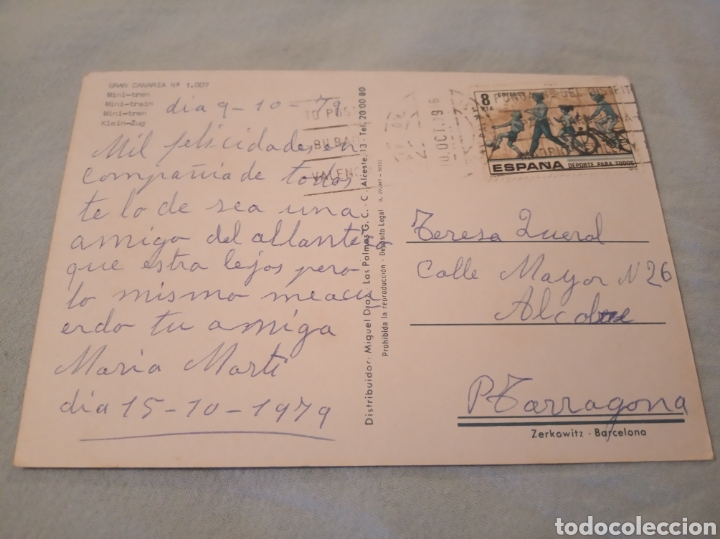 GRAN CANARIA Nº 1.007
Mini-tren
Mini-train
Mini-tren
Klein-Zug
dia 9-10-79
Mil felicidades en
compañia de todos
te lo de sea una
amiga del allante
que estra lejos pero
lo mismo meacu
erdo tu amiga
Maria Marti
dia 15-10-1979
Distribuidor: Miguel Diaz - Las Palmas G. C. - C. Alceste, 13 - Tel. 20 00 80
Prohibida la reproducción - Depósito Legal
8
ESPAÑA
DEPORTE PARA TODOS
OCT.79
Teresa Queral
Calle Mayor N 26
P Tarragona
Zerkowitz - Barcelona
todocoleccion